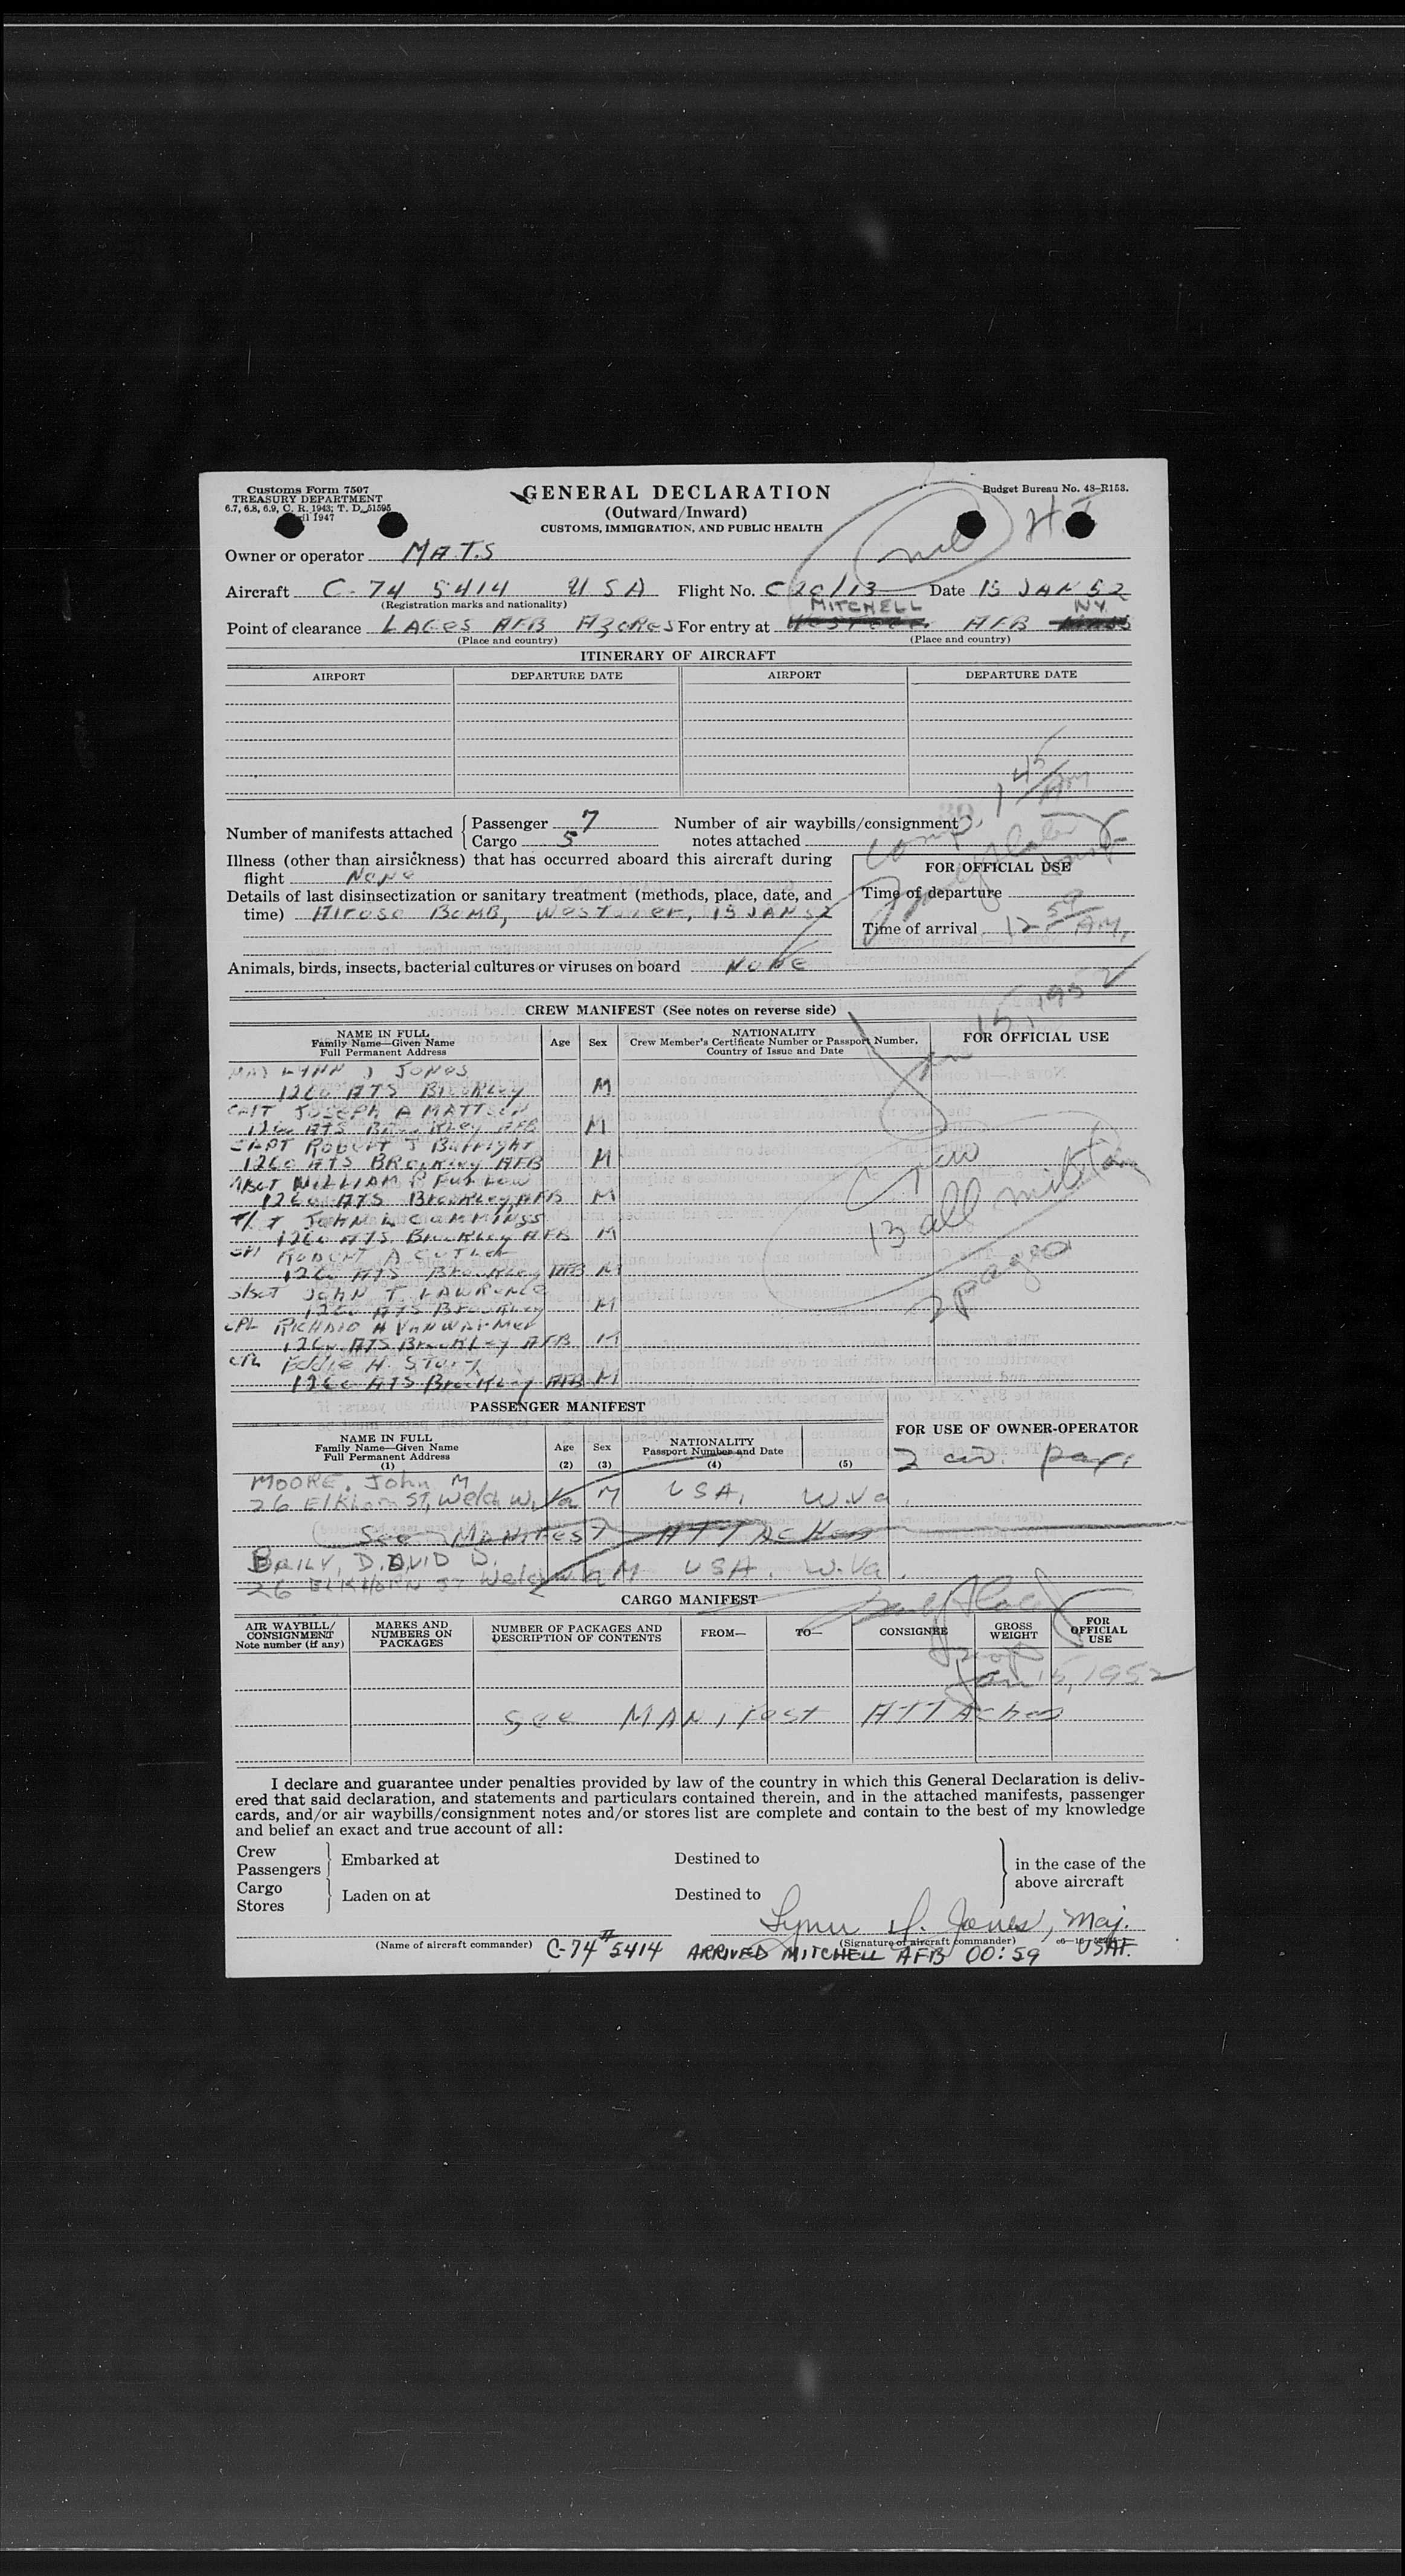 Customs Form 7507
TREASURY DEPARTMENT
6.7, 6.8, 6.9, C. R. 1943; T. D. 51595
1947
GENERAL DECLARATION
(Outward/Inward)
CUSTOMS, IMMIGRATION, AND PUBLIC HEALTH
Budget Bureau No. 48-R153.
Owner or operator MA.T.S
Aircraft C-74 5414 USA Flight No. C20/13 Date 15 JAN 52
(Registration marks and nationality)
MITCHELL NY
Point of clearance LAGES AFB AZORES For entry at AFB
(Place and country) (Place and country)
ITINERARY OF AIRCRAFT
AIRPORT DEPARTURE DATE AIRPORT DEPARTURE DATE
1 45/AM
Number of manifests attached { Passenger 7 Number of air waybills/consignment
Cargo 5 notes attached
Illness (other than airsickness) that has occurred aboard this aircraft during
flight None
FOR OFFICIAL USE
Details of last disinsectization or sanitary treatment (methods, place, date, and
time) Airoso BOMB, Westover, 15 JAN 52
Time of departure
Time of arrival 12 59 AM,
Animals, birds, insects, bacterial cultures or viruses on board NONE
15, 1952
CREW MANIFEST (See notes on reverse side)
NAME IN FULL
Family Name—Given Name
Full Permanent Address
Age Sex
NATIONALITY
Crew Member's Certificate Number or Passport Number,
Country of Issue and Date
FOR OFFICIAL USE
MAJ LYNN J JONES
1260 ATS Brookley M
CAPT JOSEPH A MATTSON
1260 ATS Brookley AFB M
CAPT Robert J
1260 ATS Brookley AFB M
WILLIAM P
1260 ATS Brookley AFB M
JOHN L CUMMINGS
1260 ATS Brookley AFB M
CPL ROBERT A CUTLER
1260 ATS Brookley AFB M
S/SGT JOHN T LAWRENCE
1260 ATS Brookley M
CPL RICHARD H
1260 ATS Brookley AFB M
CPL Eddie H.
1260 ATS Brookley AFB M
Crew
13 all military
2 pages
PASSENGER MANIFEST
NAME IN FULL
Family Name—Given Name
Full Permanent Address
(1)
Age
(2)
Sex
(3)
NATIONALITY
Passport Number and Date
(4) (5)
FOR USE OF OWNER-OPERATOR
2 civ. pax.
MOORE, John M
26 Elkhorn ST, Welch W. Va M USA, W.Va.
See MANIFEST ATTACHED
BAILY, DAVID D.
26 ELKHORN ST Welch W Va M USA. W.Va.
CARGO MANIFEST
AIR WAYBILL/
CONSIGNMENT
Note number (if any)
MARKS AND
NUMBERS ON
PACKAGES
NUMBER OF PACKAGES AND
DESCRIPTION OF CONTENTS
FROM— TO— CONSIGNEE
GROSS
WEIGHT
FOR
OFFICIAL
USE
Jan 15, 1952
See MANIFEST ATTACHED
I declare and guarantee under penalties provided by law of the country in which this General Declaration is deliv-
ered that said declaration, and statements and particulars contained therein, and in the attached manifests, passenger
cards, and/or air waybills/consignment notes and/or stores list are complete and contain to the best of my knowledge
and belief an exact and true account of all:
Crew
Passengers } Embarked at Destined to
Cargo
Stores } Laden on at Destined to
} in the case of the
above aircraft
Lynn J. Jones, Maj.
(Name of aircraft commander) (Signature of aircraft commander) USAF.
C-74 #5414 ARRIVED MITCHELL AFB 00:59